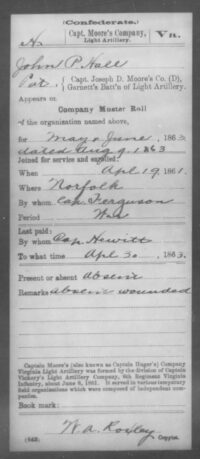 (Confederate.)
H Capt. Moore's Company, Light Artillery. Va.
John P. Hall
Pvt., { Capt. Joseph D. Moore's Co. (D), Garnett's Batt'n of Light Artillery.
Appears on
Company Muster Roll
of the organization named above,
for May & June, 1863.
dated Aug 9, 1863
Joined for service and enrolled:
When Apl 19, 1861.
Where Norfolk
By whom Cap. Ferguson
Period War
Last paid:
By whom Cap. Hewitt
To what time Apl 30, 1863.
Present or absent absent
Remarks absent wounded
Captain Moore's (also known as Captain Huger's) Company
Virginia Light Artillery was formed by the division of Captain
Vickery's Light Artillery Company, 6th Regiment Virginia
Infantry, about June 8, 1861. It served in various temporary
field organizations which were composed of independent com-
panies.
Book mark:
W. A.
(642) Copyist.